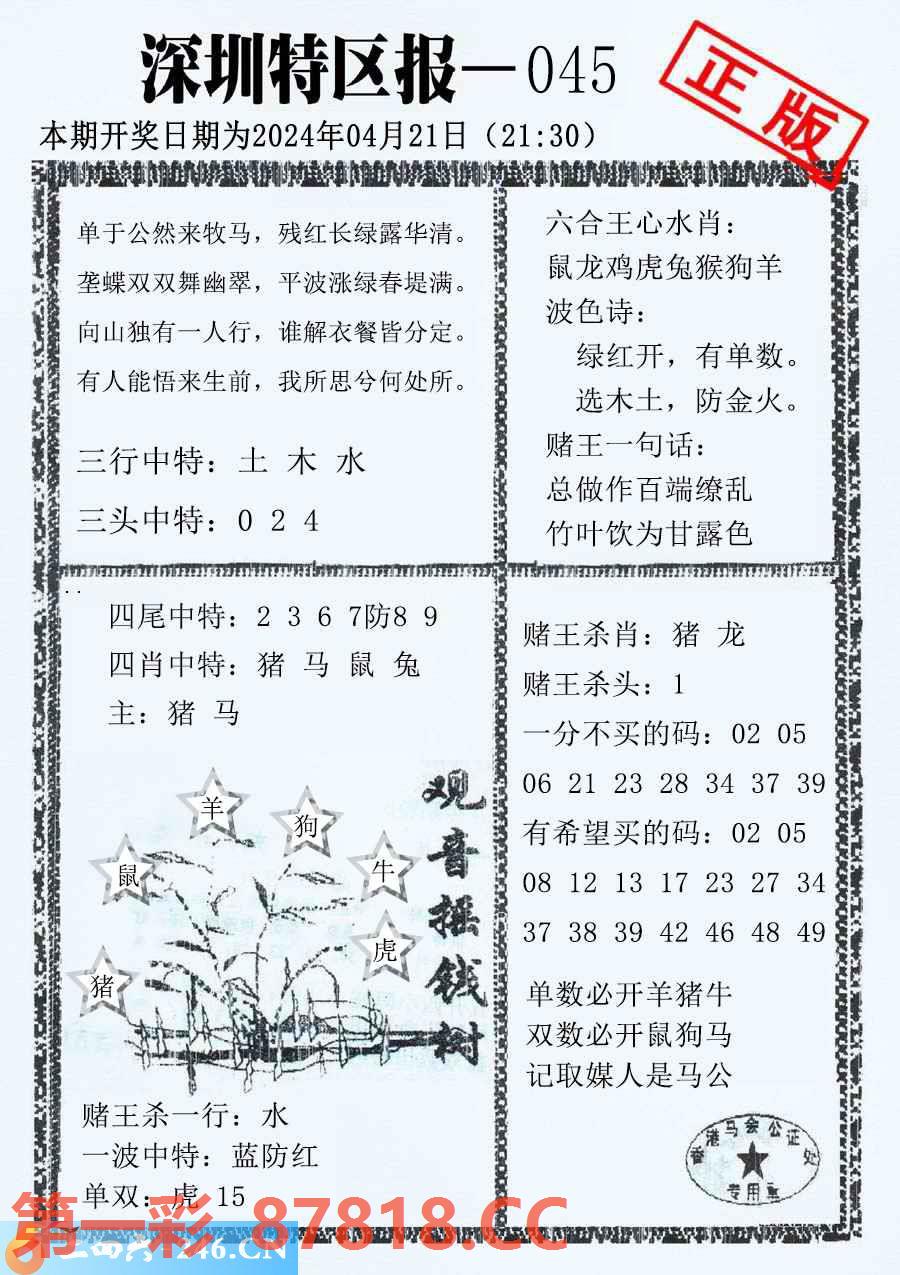 深圳特区报—045
正版
本期开奖日期为2024年04月21日（21:30）
单于公然来牧马，残红长绿露华清。
垄蝶双双舞幽翠，平波涨绿春堤满。
向山独有一人行，谁解衣餐皆分定。
有人能悟来生前，我所思兮何处所。
三行中特：土 木 水
三头中特：0 2 4
六合王心水肖：
鼠龙鸡虎兔猴狗羊
波色诗：
绿红开，有单数。
选木土，防金火。
赌王一句话：
总做作百端缭乱
竹叶饮为甘露色
四尾中特：2 3 6 7防8 9
四肖中特：猪 马 鼠 兔
主：猪 马
羊
狗
鼠
牛
虎
猪
观音摇钱树
赌王杀一行：水
一波中特：蓝防红
单双：虎 15
赌王杀肖：猪 龙
赌王杀头：1
一分不买的码：02 05
06 21 23 28 34 37 39
有希望买的码：02 05
08 12 13 17 23 27 34
37 38 39 42 46 48 49
单数必开羊猪牛
双数必开鼠狗马
记取媒人是马公
香港马会公证处
专用章
第一彩 87818.CC
246.CN